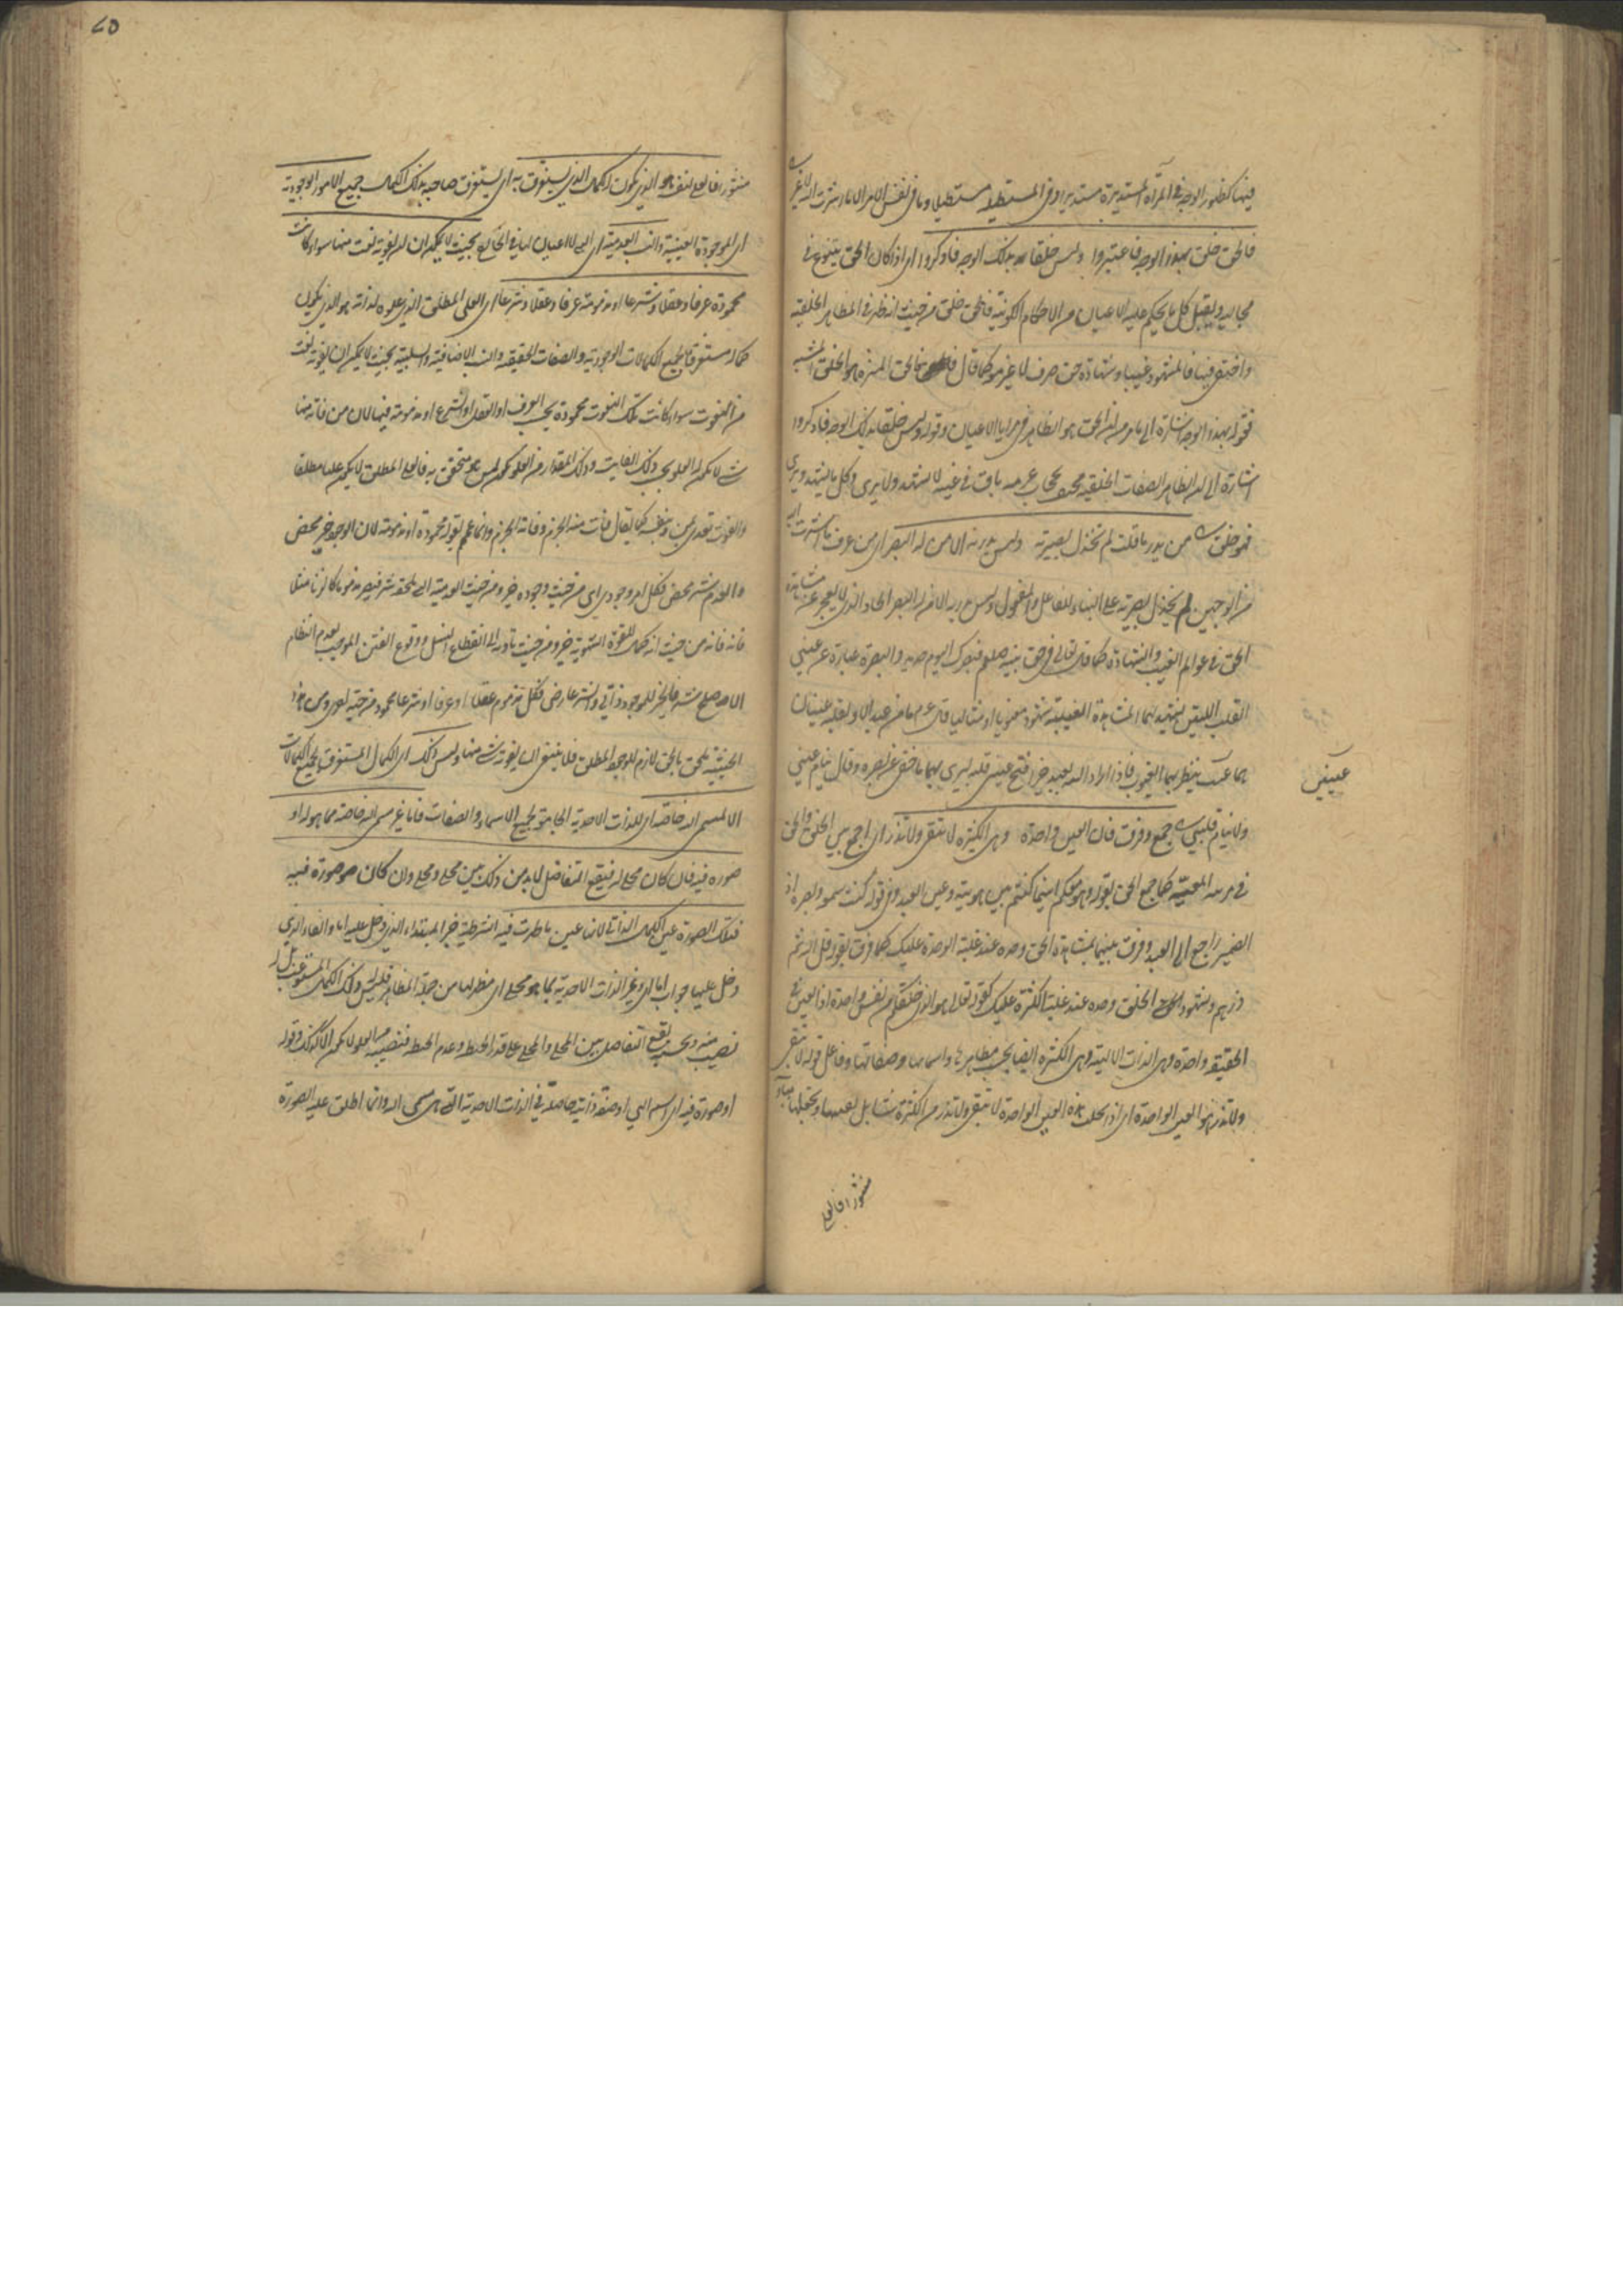 فيها كظهور الوجه في المرآة المستديرة مستديرا وفي المستطيلة مستطيلا وما في نفس الامر الا ما اشرت اليه لا غير
فالحق خلق بهذا الوجه فاعتبروا وليس خلقا بذاك الوجه فادكروا اي اذا كان الحق يتنوع في
مجاليه ويقبل كل ما يحكم عليه الاعيان من الاحكام الكونية فالحق خلق من حيث انه ظهر في المظاهر الخلقية
واختفى فيها فالمشهود غيبا وشهادة حق صرف لا غير هو كما قال فالحق المنزه هو الخلق المشبه
فقوله بهذا الوجه اشارة الى ما مر من ان الحق هو الظاهر في مرايا الاعيان وقوله وليس خلقا بذلك الوجه فادكروا
اشارة الى ان الظاهر بالصفات الخلقية محتف بحجاب عزه باق في غيبه لا يشهد ولا يرى وكل ما يشهد ويرى
فهو خلق من يدر ما قلت لم تخذل بصيرته وليس يدريه الا من له البصر اي من عرف ما اشرت اليه
من الوجهين لم يخذل بصيرته على البناء للفاعل والمفعول وليس يدريه الا من له البصر الحاد الذي لا يعجز عن مشاهدة
الحق في عوالم الغيب والشهادة كما قال تعالى في حق نبيه صلعم فبصرك اليوم حديد والبصيرة عبارة عن عيني
القلب اللتين يشهد بهما المشاهدة الغيبية شهودا معنويا او مثاليا قال عم ما من عبد الا ولقلبه عينان
هما غيب ينظر بهما الغيوب فاذا اراد الله بعبد خيرا فتح عيني قلبه ليرى بهما ما خفي عن بصره وقال ينام عيني
عينين
ولا ينام قلبي جمع وفرق فان العين واحدة وهي الكثيرة لا تبقي ولا تذر اي اجمع بين الخلق والحق
في مرتبة المعية كما جمع الحق بقوله وهو معكم اينما كنتم بين هويته وعين العبد وفي قوله كنت سمعه وبصره اذ
الضمير راجع الى العبد وفرق بينهما بمشاهدة الحق وحده عند غلبة الوحدة عليك كما فرق بقوله قل الله ثم
ذرهم وشهود الخلق وحده عند غلبة الكثرة عليك كقوله تعالى هو الذي خلقكم من نفس واحدة اذ العين في
الحقيقة واحدة وهي الذات الالهية وهي الكثيرة ايضا بحسب مظاهرها واسمائها وصفاتها وفاعل قوله لا تبقي
ولا تذر هو العين الواحدة اي اذا تجلت هذه العين الواحدة لا تبقي ولا تذر من الكثرة شيئا بل تفنيها وتجعلها هباء
منثورا فالعلي
منثورا فالعلي لنفسه هو الذي يكون له الكمال الذي يستغرق به اي يستغرق صاحبه بذلك الكمال جميع الامور الوجودية
اي الموجودة العينية والنسب العدمية اي التي لا اعيان لها في الخارج بحيث لا يمكن ان يفوته نعت منها سواء كانت
محمودة عرفا وعقلا وشرعا او مذمومة عرفا وعقلا وشرعا اي العلي المطلق الذي علوه لذاته هو الذي يكون
كماله مستغرقا لجميع الكمالات الوجودية والصفات الحقيقية والنسب الاضافية والسلبية بحيث لا يمكن ان يفوته نعت
من النعوت سواء كانت تلك النعوت محمودة بحسب العرف او العقل او الشرع او مذمومة فيها لان من فاته منها
شيء لا يكون له العلو بحسب ذلك الفايت وذلك المقدار من العلو يكون لمن هو متحقق به فالعلي المطلق لا يكون عليا مطلقا
والفوت يتعدى بمن وبنفسه كما يقال فات منه الحزم وفاته الحزم وانما عمم بقوله محمودة او مذمومة لان الوجود خير محض
والعدم شر محض فكل امر وجودي اي من حيث وجوده خير ومن حيث العدمية التي تلحقه شر فيصير مذموما كالزنا مثلا
فانه فانه من حيث انه كمال للقوة الشهوية خير ومن حيث تاديه الى انقطاع النسل ووقوع الفتن الموجب لعدم انتظام
الاصلح شر فالخير للوجود ذاتي والشر عارضي فكل مذموم عقلا او عرفا او شرعا محمود من جهة اخرى ومن هذه
الحيثية يلحق بالحق لازم للوجود المطلق فلا ينبغي ان يفوته شيء منها وليس ذلك اي الكمال المستغرق لجميع الكمالات
الا لمسمى الله خاصة اي للذات الاحدية الجامعة لجميع الاسماء والصفات فاما غير مسمى الله خاصة مما هو له او
صورة فيه فان كان مجلى له فيقع التفاضل لا بد من ذلك بين مجلى ومجلى وان كان هو صورة فيه
فتلك الصورة عين الكمال الذاتي لانها عين ما ظهرت فيه الشرطية خبر المبتداء الذي دخل عليه اما والفاء الذي
دخل عليها جواب اما اي وغير الذات الاحدية مما هو مجلى اي مظهر لها من جملة المظاهر فليس له ذلك الكمال المستوعب بل له
نصيب منه وبحسبه يقع التفاضل بين المجلى والمجلى على قدر الحيطة وعدم الحيطة فنصيبه من العلو لا يكون الا كذلك وقوله
او صورة فيه اي اسم الهي او صفة ذاتية حاصلة في الذات الاحدية التي هي مسمى الله وانما اطلق عليه الصورة